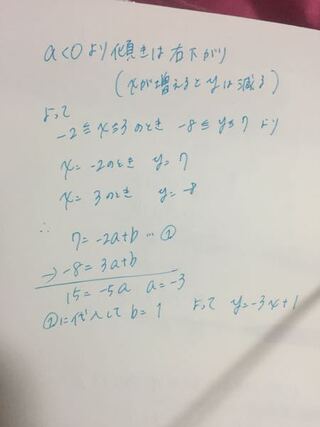 a<0より傾きは右下がり
(xが増えるとyは減る)
よって
-2≦x≦3のとき -8≦y≦7 より
x=-2のとき y=7
x=3のとき y=-8
∴
7=-2a+b…①
-)-8=3a+b
15=-5a a=-3
①に代入して b=1 よって y=-3x+1